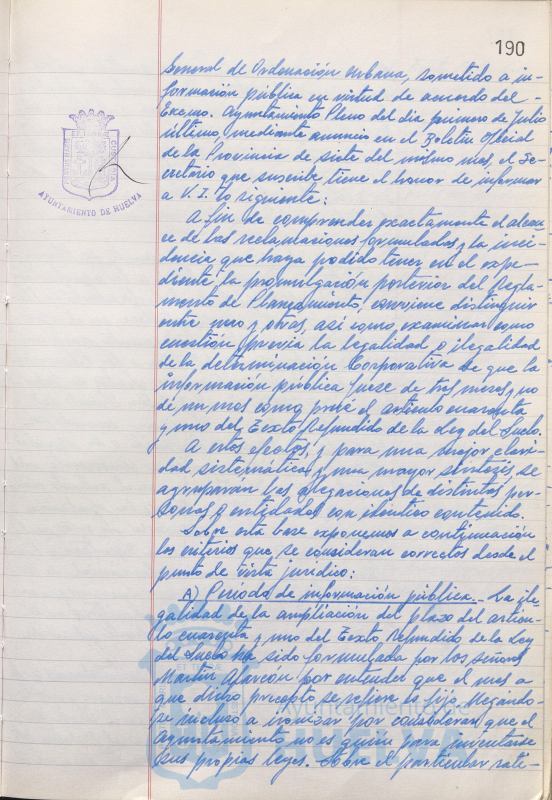 190
General de Ordenación Urbana, sometido a in-
formación pública en virtud de acuerdo del
Excmo. Ayuntamiento Pleno del día primero de Julio
último, mediante anuncio en el Boletín Oficial
de la Provincia de siete del mismo mes, el Se-
cretario que suscribe tiene el honor de informar
a V.I. lo siguiente:
A fin de comprender exactamente el alcan-
ce de las reclamaciones formuladas y la inci-
dencia que haya podido tener en el expe-
diente, la promulgación posterior del Regla-
mento de Planeamiento, conviene distinguir
entre unos y otras, así como, examinar como
cuestión previa la legalidad o ilegalidad
de la determinación Corporativa de que la
información pública fuese de tres meses y no
de un mes como el artículo cuarenta
y uno del Texto Refundido de la Ley del Suelo.
A estos efectos, y para una mejor clari-
dad sistemática y una mayor síntesis se
agruparán las alegaciones de distintas per-
sonas o entidades con idéntico contenido.
Sobre esta base exponemos a continuación
los criterios que se consideran correctos desde el
punto de vista jurídico:
A) Período de información pública.- La ile-
galidad de la ampliación del plazo del artícu-
lo cuarenta y uno del Texto Refundido de la Ley
del Suelo ha sido formulada por los señores
Martín Alarcón por entender que el mes a
que dicho precepto se refiere es fijo, llegándo-
se incluso a ironizar por considerar que el
Ayuntamiento no es quién para inventarse
sus propias leyes. Sobre el particular
AYUNTAMIENTO DE HUELVA
Ayuntamiento de
HUELVA